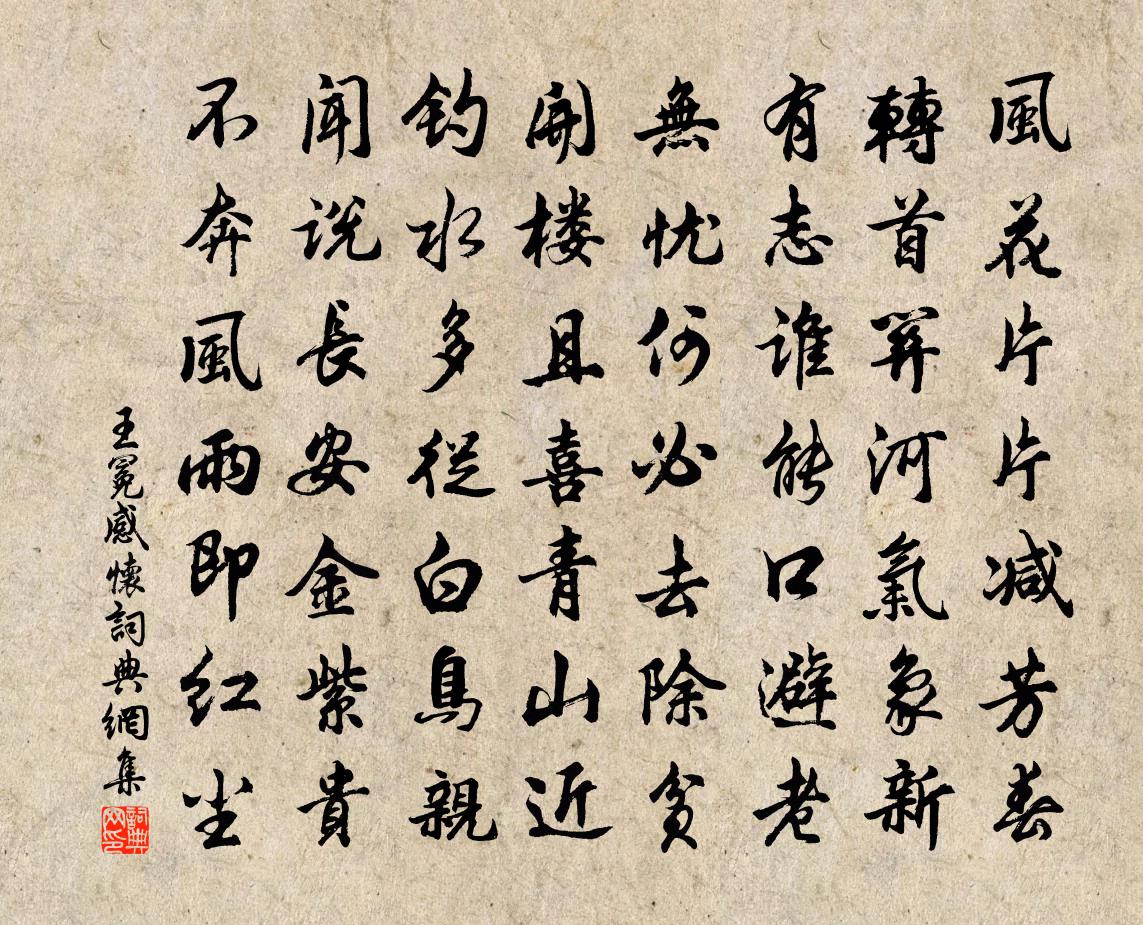 風花片片減芳春
轉首關河氣象新
有志誰能口避老
無忧何必去除貧
開楼且喜青山近
釣水多從白鳥親
聞说長安金紫貴
不奔風雨即红尘
王冕感懷詞典網集
詞典网印